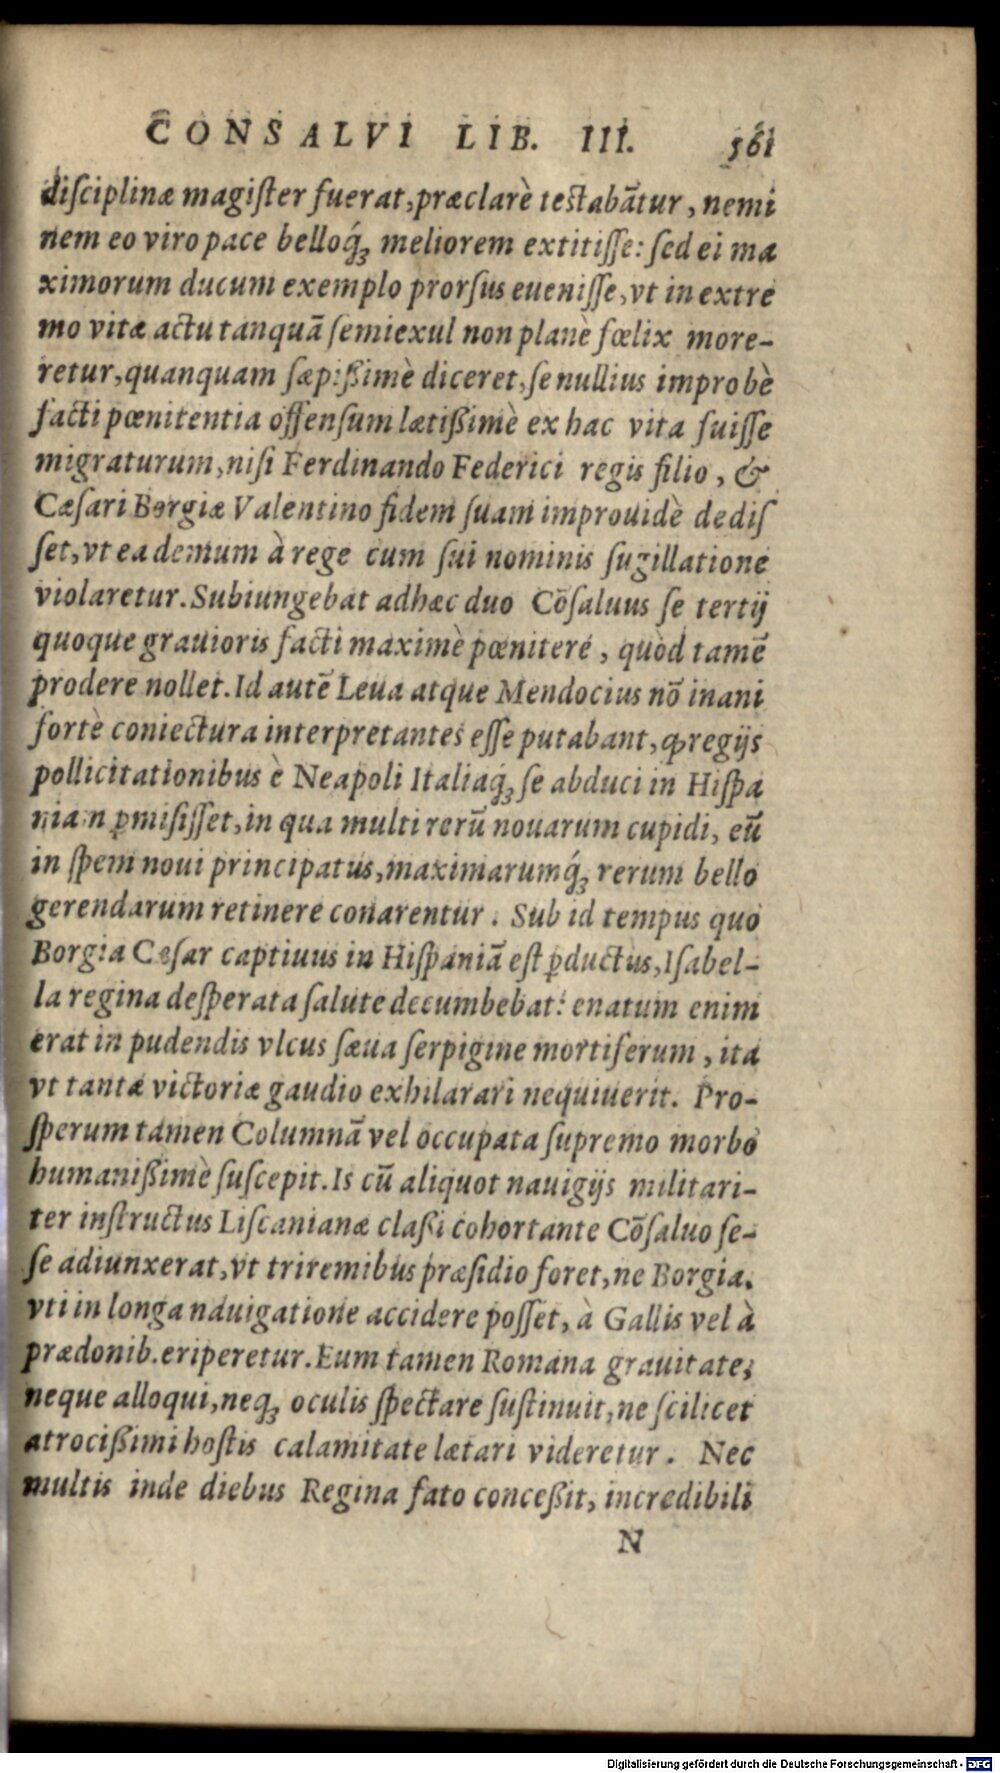 CONSALVI LIB. III. 561
diſciplinæ magiſter fuerat, præclarè testabātur, nemi
nem eo viro pace belloq́; meliorem extitiſſe: ſed ei ma
ximorum ducum exemplo prorſus eueniſſe, vt in extre
mo vitæ actu tanquā ſemiexul non planè fœlix more-
retur, quanquam ſæpißimè diceret, ſe nullius improbè
facti pœnitentia offenſum lætißimè ex hac vita fuiſſe
migraturum, niſi Ferdinando Federici regis filio, &
Cæſari Borgiæ Valentino fidem ſuam improuidè dediſ
ſet, vt ea demum à rege cum ſui nominis ſugillatione
violaretur. Subiungebat adhæc duo Cōſaluus ſe tertij
quoque grauioris facti maximè pœnitere, quòd tamē
prodere nollet. Id autē Leua atque Mendocius nō inani
fortè coniectura interpretantes eſſe putabant, ꝙ regijs
pollicitationibus è Neapoli Italiaq́; ſe abduci in Hiſpa
niam ꝑmiſiſſet, in qua multi rerū nouarum cupidi, eū
in ſpem noui principatus, maximarumq́; rerum bello
gerendarum retinere conarentur. Sub id tempus quo
Borgia Cæſar captiuus in Hiſpaniā eſt ꝑductus, Iſabel-
la regina deſperata ſalute decumbebat: enatum enim
erat in pudendis vlcus ſæua ſerpigine mortiferum, ita
vt tantæ victoriæ gaudio exhilarari nequiuerit. Pro-
ſperum tamen Columnā vel occupata ſupremo morbo
humanißimè ſuſcepit. Is cū aliquot nauigijs militari-
ter inſtructus Liſcanianæ claßi cohortante Cōſaluo ſe-
ſe adiunxerat, vt triremibus præſidio foret, ne Borgia,
vti in longa nauigatione accidere poſſet, à Gallis vel à
prædonib. eriperetur. Eum tamen Romana grauitate,
neque alloqui, neq; oculis ſpectare ſuſtinuit, ne ſcilicet
atrocißimi hoſtis calamitate lætari videretur. Nec
multis inde diebus Regina fato conceßit, incredibili
N
Digitalisierung gefördert durch die Deutsche Forschungsgemeinschaft - DFG